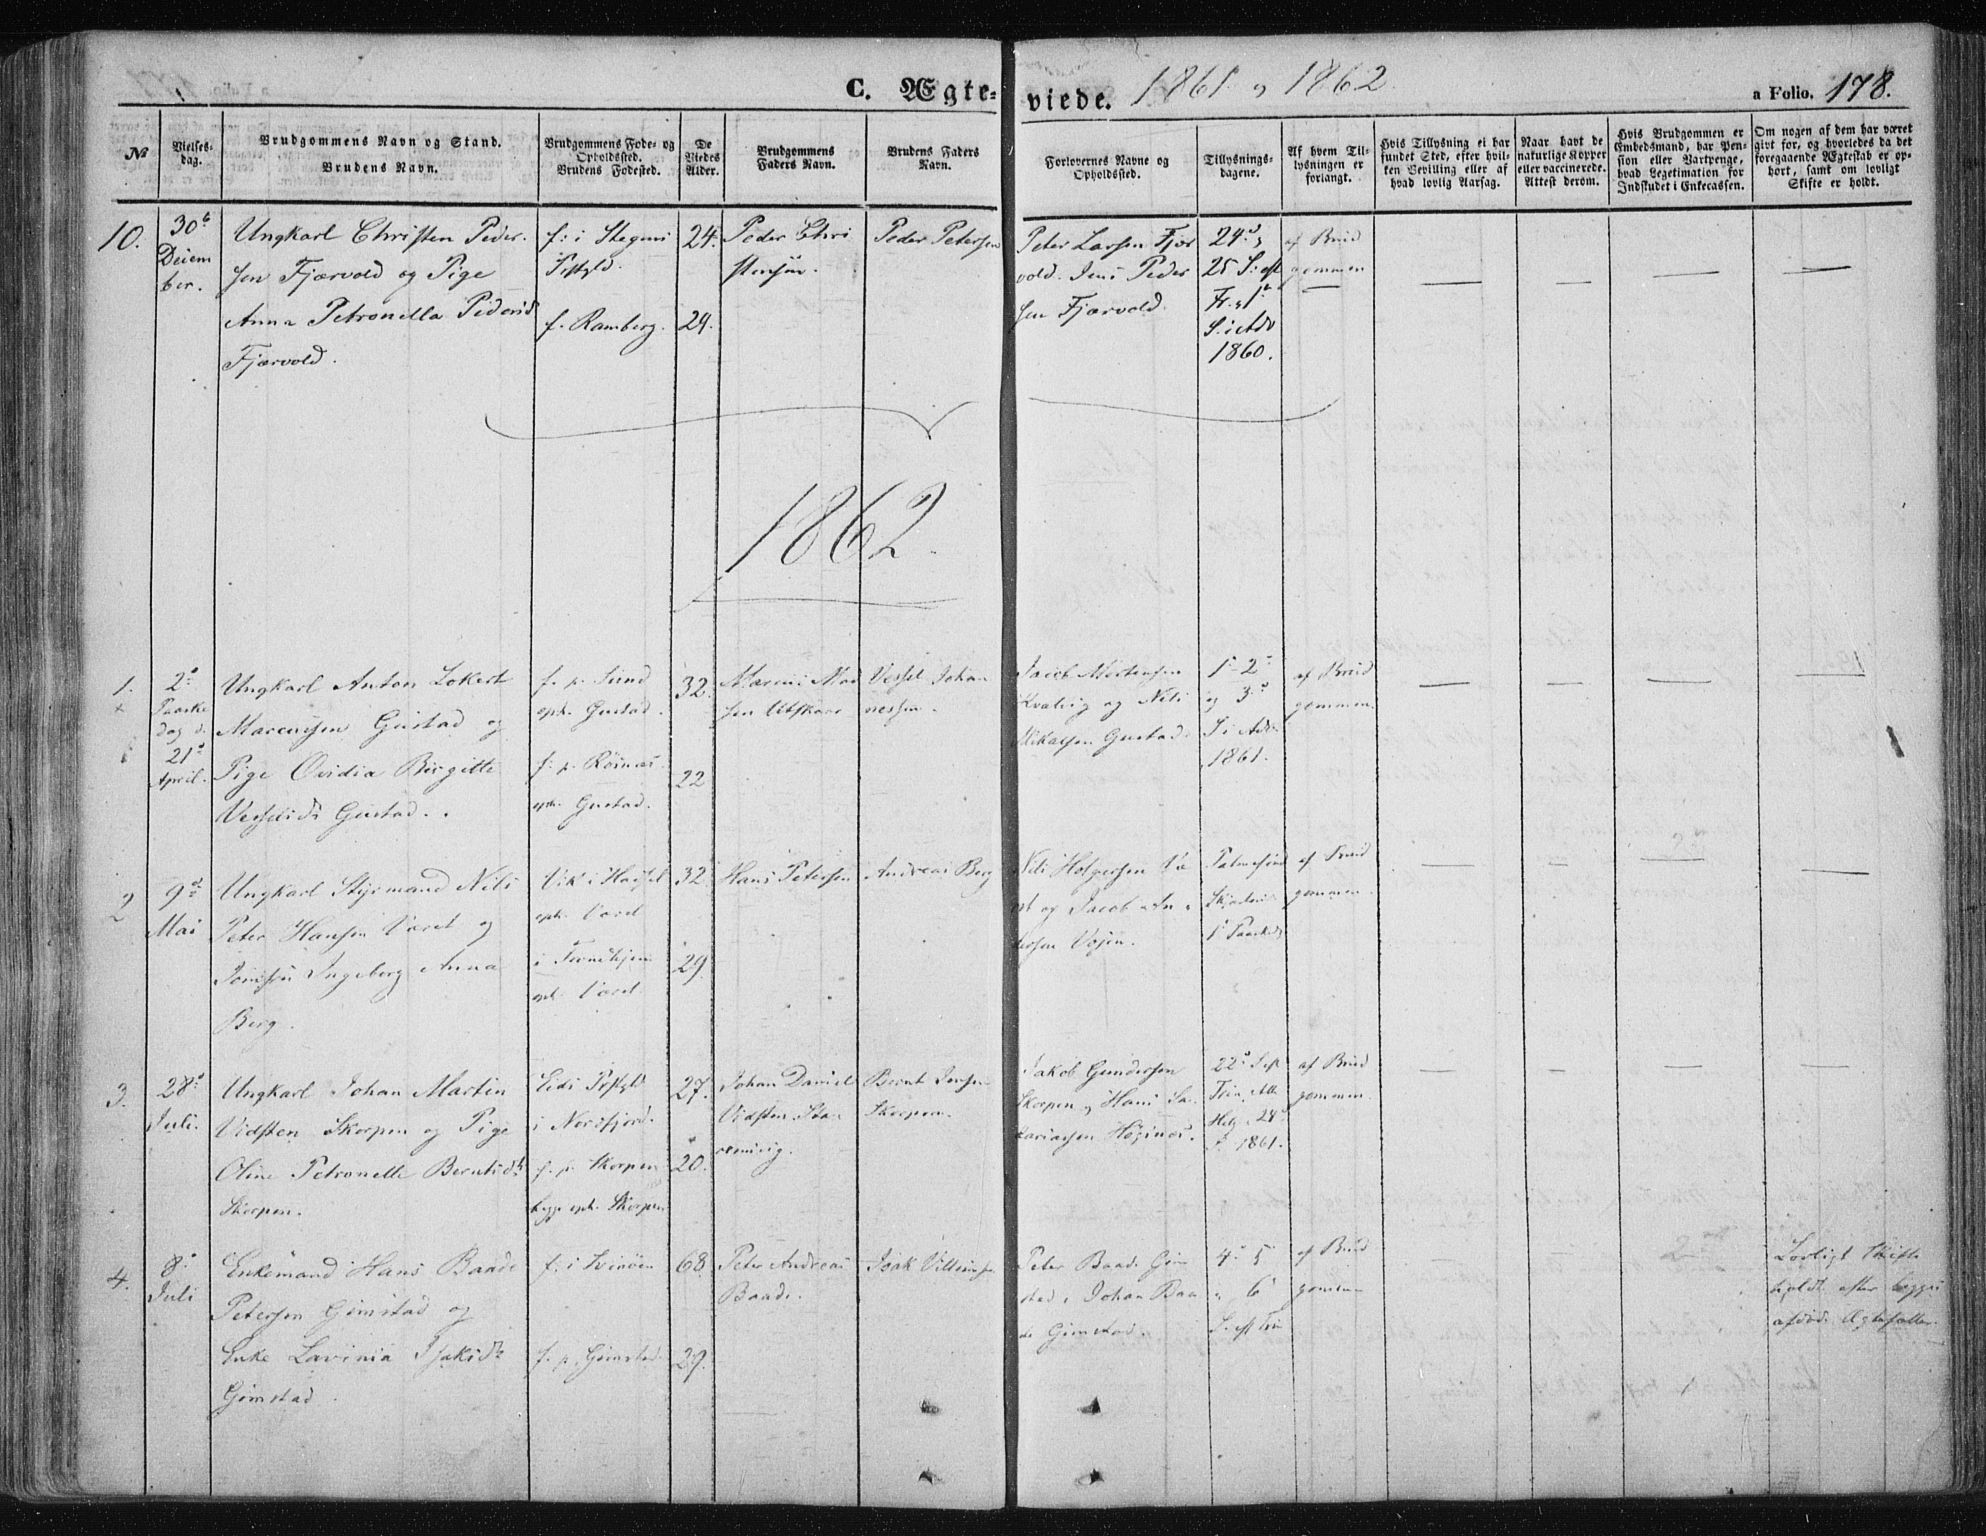 C. Ægte-
viede. 1861 og 1862
a Folio. 178.
№
Vielses-
dag.
Brudgommens Navn og Stand.
Brudens Navn.
Brudgommens Fode- og
Opholdssted.
Brudens Fodested.
De
Viedes
Alder.
Brudgommens
Faders Navn.
Brudens Faders
Navn.
Forlovernes Navne og
Opholdssted.
Tillysnings-
dagene.
Af hvem Til-
lysningen er
forlangt.
Hvis Tillysning ei har
fundet Sted, efter hvil-
ken Bevilling eller af
hvad lovlig Aarsag.
Naar havt de
naturlige Kopper
eller vaccinerede.
Attest derom.
Hvis Brudgommen er
Embedsmand, har Pen-
sion eller Vartpenge,
hvad Legetimation for
Indskudet i Enkecassen.
Om nogen af dem har været
givt for, og hvorledes da det
foregaaende Ægteskab er op-
hort, samt om lovligt
Skifte er holdt.
10.
30te
Decem
ber.
Ungkarl Christen Peder-
sen Fjærvold og Pige
Anna Petronella Pedersd
Fjærvold.
f: i Stegens
Prstgld.
f. Ramberg.
24.
24.
Peder Chri
stensen.
Peder Petersen
Peter Larsen Fjær
vold. Jens Peder
sen Fjærvold.
24de og
25 S: eft
Tr. og 1te
S. i Adv
1860.
af Brud
gommen
1862.
1.
2den
Paaske
dag d.
21de
April.
Ungkarl Anton Lokert
Marcussen Gustad og
Pige Ovidia Birgitte
Vesselsd. Gustad.
f. p. Sund
oph. Gustad.
f. p. Röines
oph. Gustad.
32.
22
Marcus Mad
sen Utskaar
Vessel Johan
nessen.
Jacob Mortensen
Kvalvig og Nils
Mikalsen Gustad.
1. 2den
og 3de
S i Adv.
1861.
af Brud
gommen.
2
9de
Mai
Ungkarl Styrmand Nils
Peter Hansen Været og
Jomfru Ingeborg Anna
Berg.
Vik i Hassel
oph. Været
i Trondhjem
oph. Været.
32
29
Hans Petersen
Andreas Berg
Nils Holgersen Væ
ret og Jacob An-
dersen Vojen.
Palmesönd
1ste Paasked
af Brud
gommen.
3.
28de
Juli.
Ungkarl Johan Martin
Vidsten Skorpen og Pige
Oline Petronelle Berntsdtr
Skorpen.
Eids Prstgld
i Nordfjord.
f. p. Skorpen
begge oph. Skorpen
27.
20.
Johan Daniel
Vidsten
Bernt Jensen
Skorpen.
Jakob Gundersen
Skorpen og Hans Za-
kariassen Höines.
22de S. eft
Trin. Alle
Helg. 24de
S. 1861.
af Brud
gommen.
4.
8de
Juli
Enkemand Hans Baade
Petersen Gimstad og
Enke Lavinia Isaksdtr
Gimstad.
f: i Svinöen
f. p. Gimstad
68
29.
Peter Andreas
Baade.
Isak Villumsen
Peter Baade Gim
stad, Johan Baa
de Gimstad.
4de 5
og 6
S. eft Trin
af Brud
gommen
Lovligt Skifte
holdt efter begges
afdöde Ægtefæller.